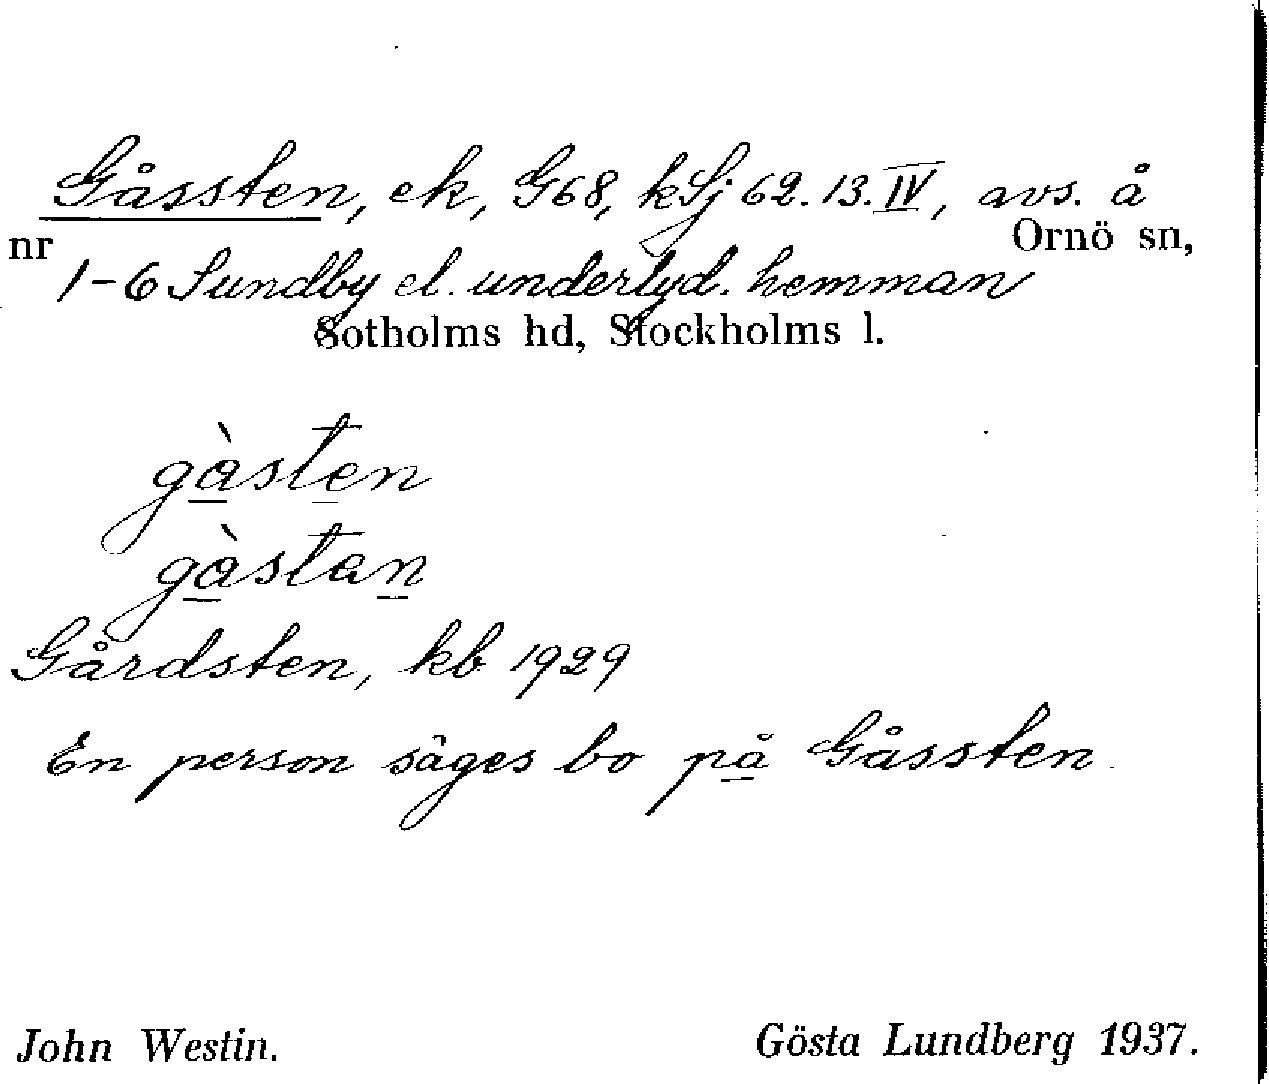 Gåssten, ek, G68, kSj 62.13.IV, avs. å
Ornö sn,
nr 1-6 Sundby el. underlyd. hemman
Sotholms hd, Stockholms l.
gàsten
gàstan
Gårdsten, kb 1929
En person säges bo på Gåssten
John Westin.
Gösta Lundberg 1937.